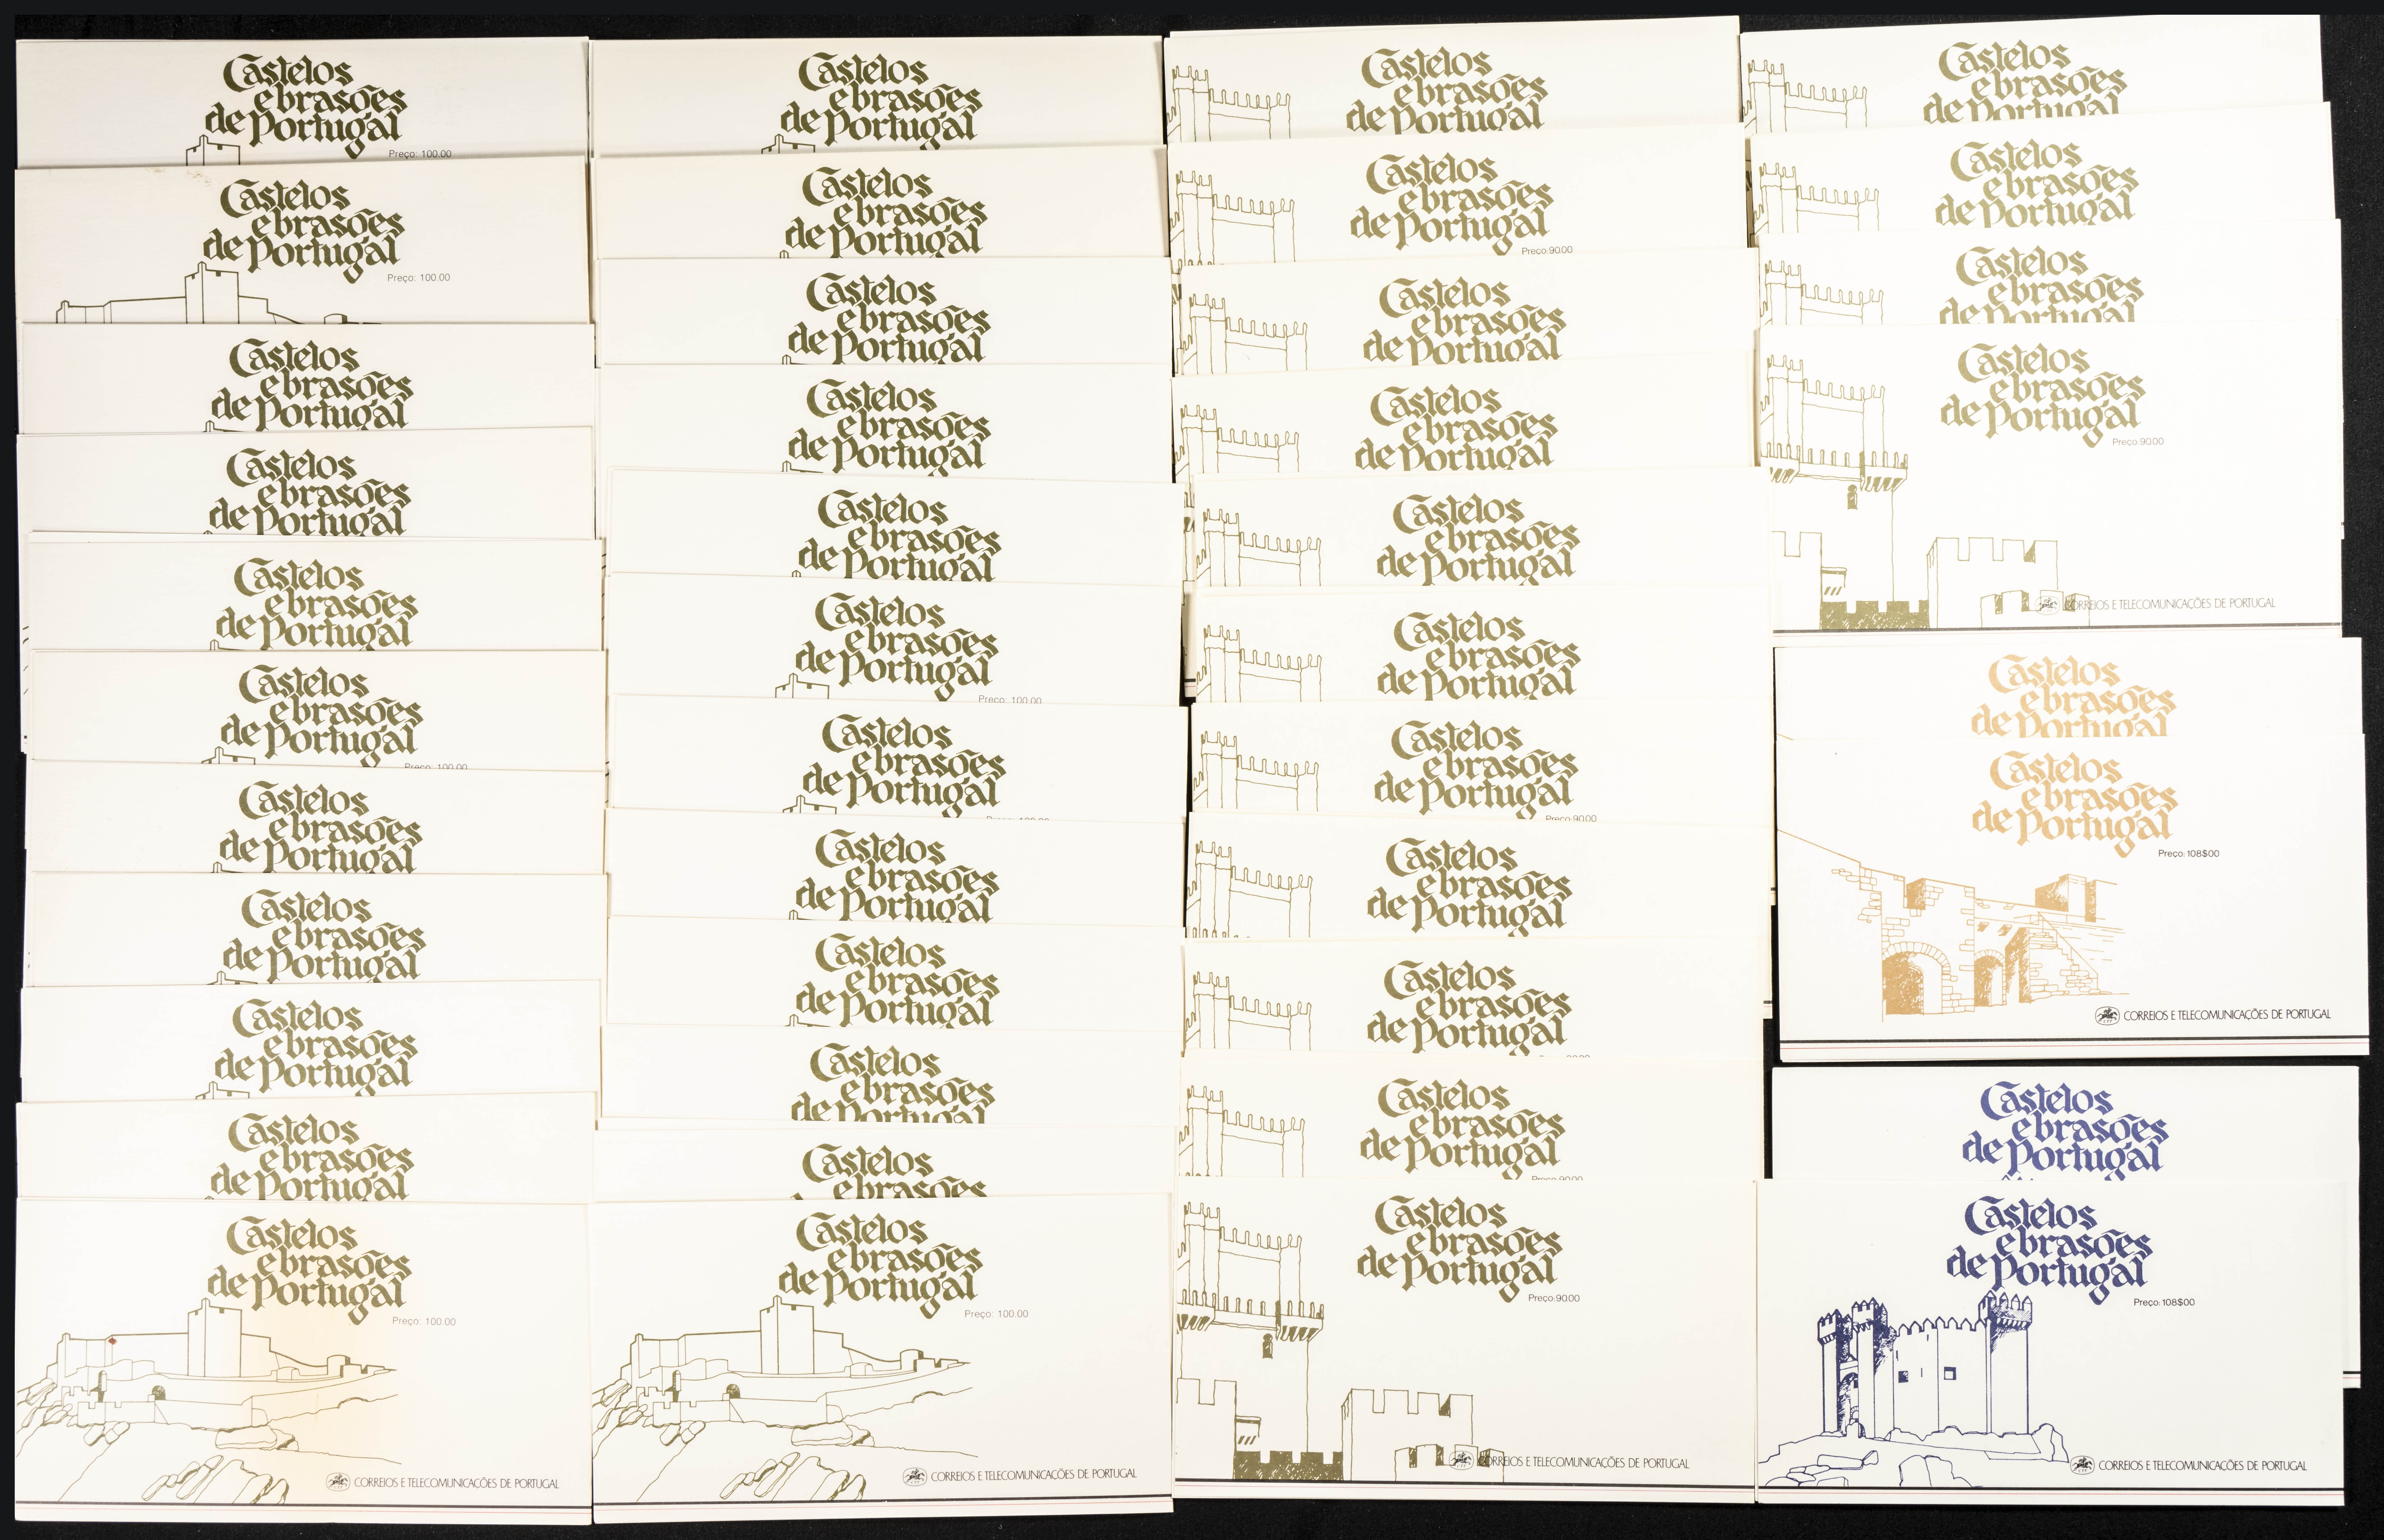 Castelos
e brasões
de Portugal
Preço: 100.00
Castelos
e brasões
de Portugal
Preço: 100.00
Castelos
e brasões
de Portugal
Castelos
e brasões
de Portugal
Castelos
e brasões
de Portugal
Castelos
e brasões
de Portugal
Preço: 100.00
Castelos
e brasões
de Portugal
Castelos
e brasões
de Portugal
Castelos
e brasões
de Portugal
Castelos
e brasões
de Portugal
Castelos
e brasões
de Portugal
Preço: 100.00
CORREIOS E TELECOMUNICAÇÕES DE PORTUGAL
Castelos
e brasões
de Portugal
Castelos
e brasões
de Portugal
Castelos
e brasões
de Portugal
Castelos
e brasões
de Portugal
Castelos
e brasões
de Portugal
Castelos
e brasões
de Portugal
Preço: 100.00
Castelos
e brasões
de Portugal
Castelos
e brasões
de Portugal
Castelos
e brasões
de Portugal
Castelos
e brasões
de Portugal
Castelos
e brasões
Castelos
e brasões
de Portugal
Preço: 100.00
CORREIOS E TELECOMUNICAÇÕES DE PORTUGAL
Castelos
e brasões
de Portugal
Castelos
e brasões
de Portugal
Preço:90.00
Castelos
e brasões
de Portugal
Castelos
e brasões
de Portugal
Castelos
e brasões
de Portugal
Castelos
e brasões
de Portugal
Castelos
e brasões
de Portugal
Preço:90.00
Castelos
e brasões
de Portugal
Castelos
e brasões
de Portugal
Castelos
e brasões
de Portugal
Preço:90.00
Castelos
e brasões
de Portugal
Preço:90.00
CORREIOS E TELECOMUNICAÇÕES DE PORTUGAL
Castelos
e brasões
de Portugal
Castelos
e brasões
de Portugal
Castelos
e brasões
de Portugal
Castelos
e brasões
de Portugal
Preço:90.00
CORREIOS E TELECOMUNICAÇÕES DE PORTUGAL
Castelos
e brasões
de Portugal
Castelos
e brasões
de Portugal
Preço: 108$00
CORREIOS E TELECOMUNICAÇÕES DE PORTUGAL
Castelos
e brasões
de Portugal
Castelos
e brasões
de Portugal
Preço: 108$00
CORREIOS E TELECOMUNICAÇÕES DE PORTUGAL